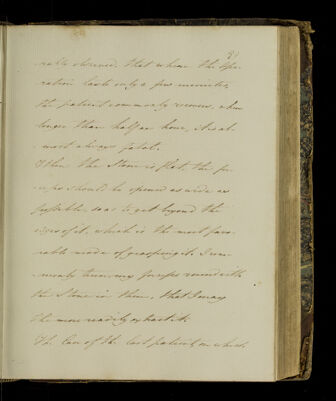 rally observed, that when the ope-
ration lasts only a few minutes,
the patient commonly recovers, when
longer than half an hour, it is al-
most always fatal.
When the Stone is flat, the for-
ceps should be opened as wide as
possible, so as to get beyond the
edges of it, which is the most favo-
rable mode of grasping it. I com-
monly turn my forceps round with
the Stone in them, that I may
the more readily extract it.
The Case of the last patient on which